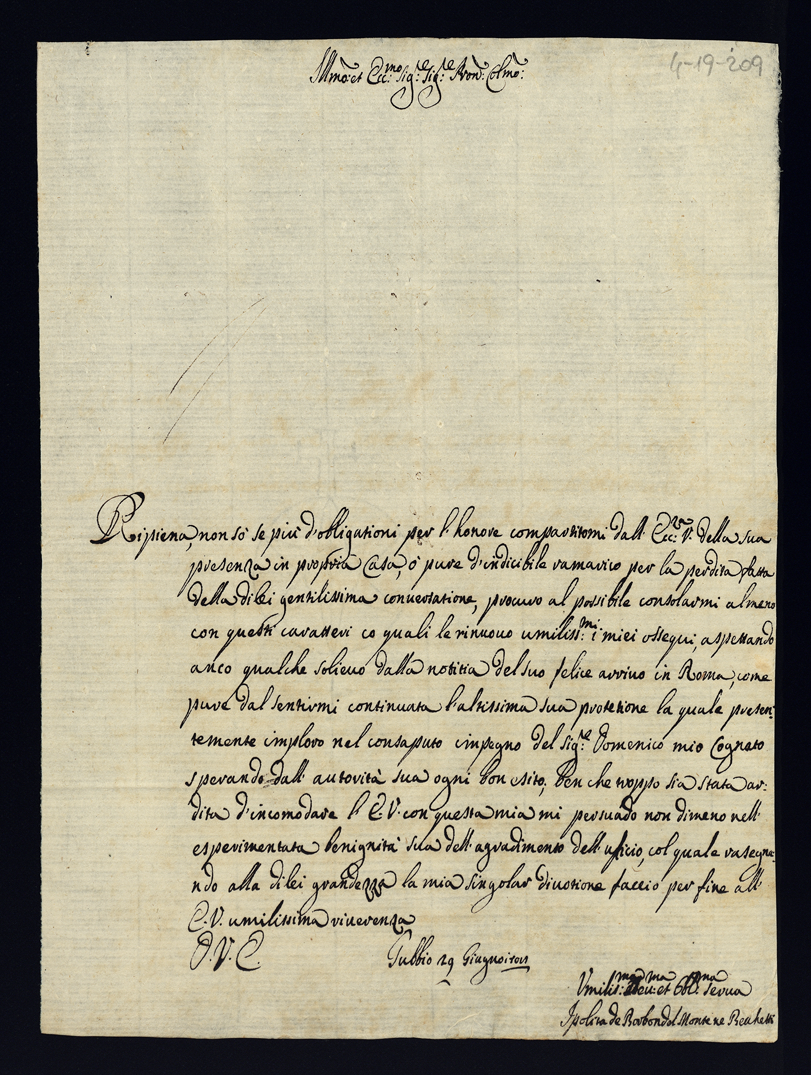 4-19-209
Illmo: et Ecc:mo Sig:re Sig:re Pron: Colmo:
Ripiena, non sò se più d'obligationi per l'honore compartitomi dall' Ecc:za V. della sua
presenza in propria Casa, ò pure d'indicibile ramarico per la perdita fatta
della di lei gentilissima conuersatione, procuro al possibile consolarmi almeno
con questi caratteri co quali le rinuouo umiliss:mi i miei ossequi, aspettando
anco qualche solieuo dalla notitia del suo felice arriuo in Roma, come
pure dal sentirmi continuata l'altissima sua protetione la quale presen:
temente imploro nel consaputo impegno del Sig:re Domenico mio Cognato
sperando dall' autorità sua ogni bon esito, ben che troppo sia stata ar:
dita d'incomodare l'E.V. con questa mia mi persuado non dimeno nell'
esperimentata benignità sua dell'agradimento dell'uficio, col quale rasegna:
ndo alla di lei grandezza la mia singolar diuotione faccio per fine all'
E.V. umilissima riuerenza
D.V.E. Gubbio 29 Giugno
Vmilis:ma Deu:ma et Obl:ma Serua
Ipolita de Borbon del Monte ne Beuhetti